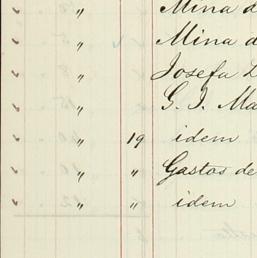 " Mina d
" Mina d
" Josefa
" G. I. Ma
" 19 idem
" " Gastos de
" " idem